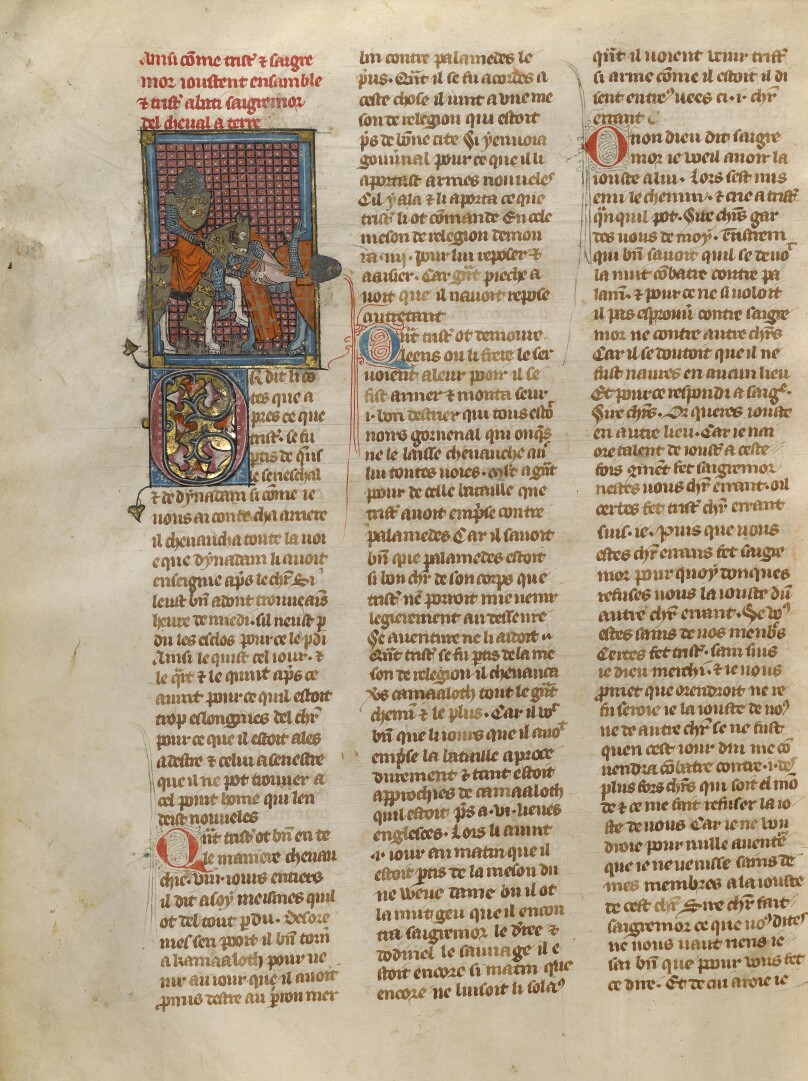 Ainsi cōme trist' ⁊ saigre
mor ioustent ensamble
⁊ trist' abati saigremor
del cheual a terre
Or dit li cō
tes que a
pres ce que
trist' se fu
partis de q̄us
le seneschal
⁊ de dynadam si cōme ie
uous ai conte cha arriere
il cheuaucha toute la uoi
e que dynadam li auoit
enseignie ap̄s le chr̄ Si
leust bn̄ adont trouue ains
heure de miedi· sil neust p
du les esclos pour ce le p̄di
Ainsi le quist cel iour· ⁊
le q̄rt ⁊ le quint ap̄s ce
auint pour ce quil estoit
trop eslongnies del chr̄
pour ce que il estoit ales
a destre ⁊ celui a senestre
que il ne pot trouuer a
cel point home qui len
deist nouueles
Qn̄t trist' ot bn̄ en te
le maniere cheuau
chie· viii· iours entiers
il dit a soy meismes quil
ot del tout p̄du· desore
mes sen pooit il bn̄ torn'
a kamaaloth pour ue
nir au iour que il auoit
promis destre au perron mer
lin contre palamedes le
p̄us· Qn̄t il se fu acordes a
ceste chose il uint a vne me
son de relegion qui estoit
p̄s de bōne cite Si y enuoia
gouuñal pour ce que il li
aportast armes nouueles
Cil y ala ⁊ li aporta ce que
trist' li ot cōmande En cele
meson de relegion demou
ra· iiii· iour lui reposer ⁊
aaisier· Car gn̄t pieche a
uoit que il nauoit repose
autretant
Qn̄t trist' ot demoure
leens ou li frere le ser
uoient a leur pooir il se
fist armer ⁊ monta seur
i· bon destrier qui tous esto'
noirs gornenal qui onq̄s
ne le laisse cheuauche au'
lui toutes uoies· mlt a gn̄t
pour de celle bataille que
trist' auoit emp̄se contre
palamedes Car il sauoit
bn̄ que palamedes estoit
si bon chr̄ de son corps que
trist' nē porroit mie uenir
legierement au desseure
Se auenture ne li aidoit
Qn̄t trist' se fu p̄tis de la me
son de relegion il cheuauca
v̄s camaaloth tout le gn̄t
chemī ⁊ le plus· Car il uo'
bn̄ que li iours que il auo'
emp̄se la bataille aproce
durement ⁊ tant estoit
approchies de camaaloth
quil estoit p̄s a· vi· lieues
englesces· Lors li auint
·i· iour au matin que il
estoit p̄tis de la meson du
ne weue dame ou il ot
la nuit geu que il encon
tra saigremor le d'ree ⁊
dodinel le sauuage il e
stoit encore si matin que
encore ne luisoit li solaus
qn̄t il uoient uenir trist'
si arme cōme il estoit il di
sent entre' uees ci· i· chr̄
errant
O non dieu dit saigre
mor ie weil auoir la
iouste a lui· Lors sest mis
emi le chemin· ⁊ crie a trist'
q̄nquil pot· Sire chr̄s gar
des uous de moy· Tristrem
qui bn̄ sauoit quil se deuo'
la nuit cōbatre contre pa
lam'· ⁊ pour ce ne si uoloit
il pas esprouuer contre saigre
mor ne contre autre chr̄s
Car il se doutoit que il ne
fust naures en aucun lieu
Et pour ce respondi a saig'·
Sire chr̄s· Or queres iouste
en autre lieu· Car ie nai
ore talent de iouster a ceste
fois q̄ment fet saigremor
nestes uous chr̄ errant· oil
certes fet trist' chr̄ errant
suis· ie· puis que uous
estes chr̄ errans fet saigre
mor pour quoy donques
refuses uous la iouste dun
autre chr̄ errant· Se uo'
estes sains de uos menbr̄s
Certes fet trist'· sain suis
ie dieu merchi· ⁊ ie uous
p̄met que orendroit ne re
fuseroie ie la iouste de uo'
ne de autre chr̄ se ne fust
quen cest iour dui me cō
uendra cōbatre contre· i· des
plus fors chr̄s qui soit el mō
de ⁊ ce me fait refuser la io
ste de uous Car ie ne vou
droie pour nulle auentē
que ie ne uenisse sains de
mes membres a la iouste
de cest chr̄ Sire chr̄ fait
saigremor ce que uo' dites
ne uous uaut riens ie
sai bn̄ que pour vous fet
ce dire· Et de cui aroie ie